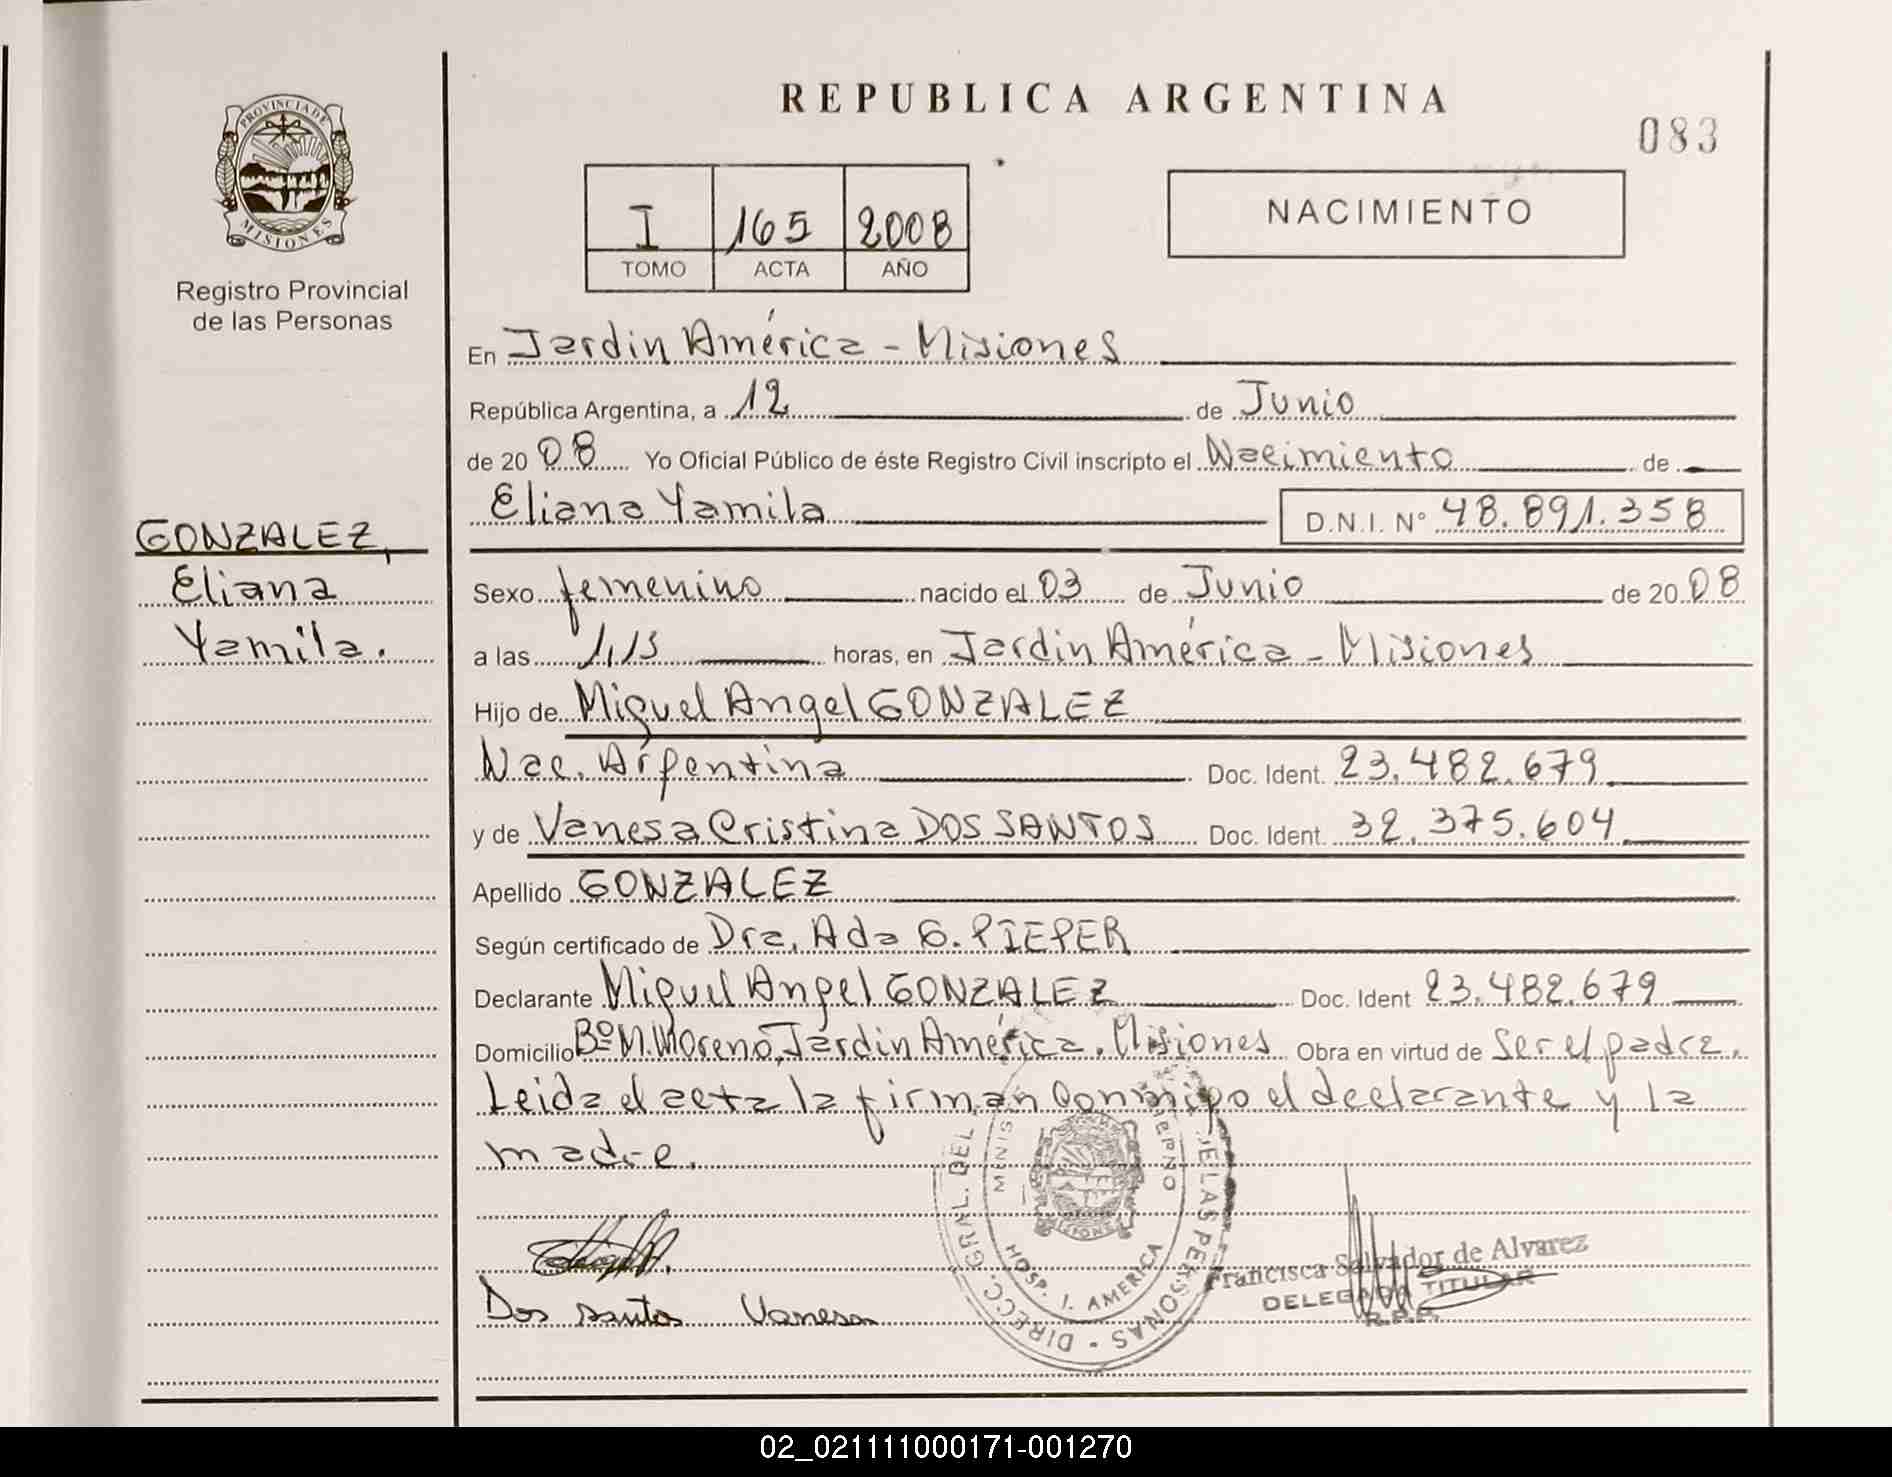 REPUBLICA ARGENTINA
083
PROVINCIA DE
MISIONES
Registro Provincial
de las Personas
I 165 2008
TOMO ACTA AÑO
NACIMIENTO
En Jardin América - Misiones
República Argentina, a 12 de Junio
de 20 08 Yo Oficial Público de éste Registro Civil inscripto el Nacimiento de
Eliana Yamila D.N.I. N° 48.891.358
GONZALEZ,
Eliana
Yamila.
Sexo femenino nacido el 03 de Junio de 20 08
a las 1,15 horas, en Jardin América - Misiones
Hijo de Miguel Angel GONZALEZ
Nac. Argentina Doc. Ident. 23.482.679
y de Vanesa Cristina DOS SANTOS Doc. Ident. 32.375.604
Apellido GONZALEZ
Según certificado de Dra. Ada G. PIEPER
Declarante Miguel Angel GONZALEZ Doc. Ident 23.482.679
Domicilio Bº M. Moreno, Jardin América. Misiones Obra en virtud de Ser el padre.
Leida el acta la firman conmigo el declarante y la
madre.
DIRECC. GRAL. DEL DE LAS PERSONAS
HOSP. J. AMERICA
MISIONES
Dos santos Vanesa
Francisca Salvador de Alvarez
DELEGADA TITULAR
R.P.P.
02_021111000171-001270